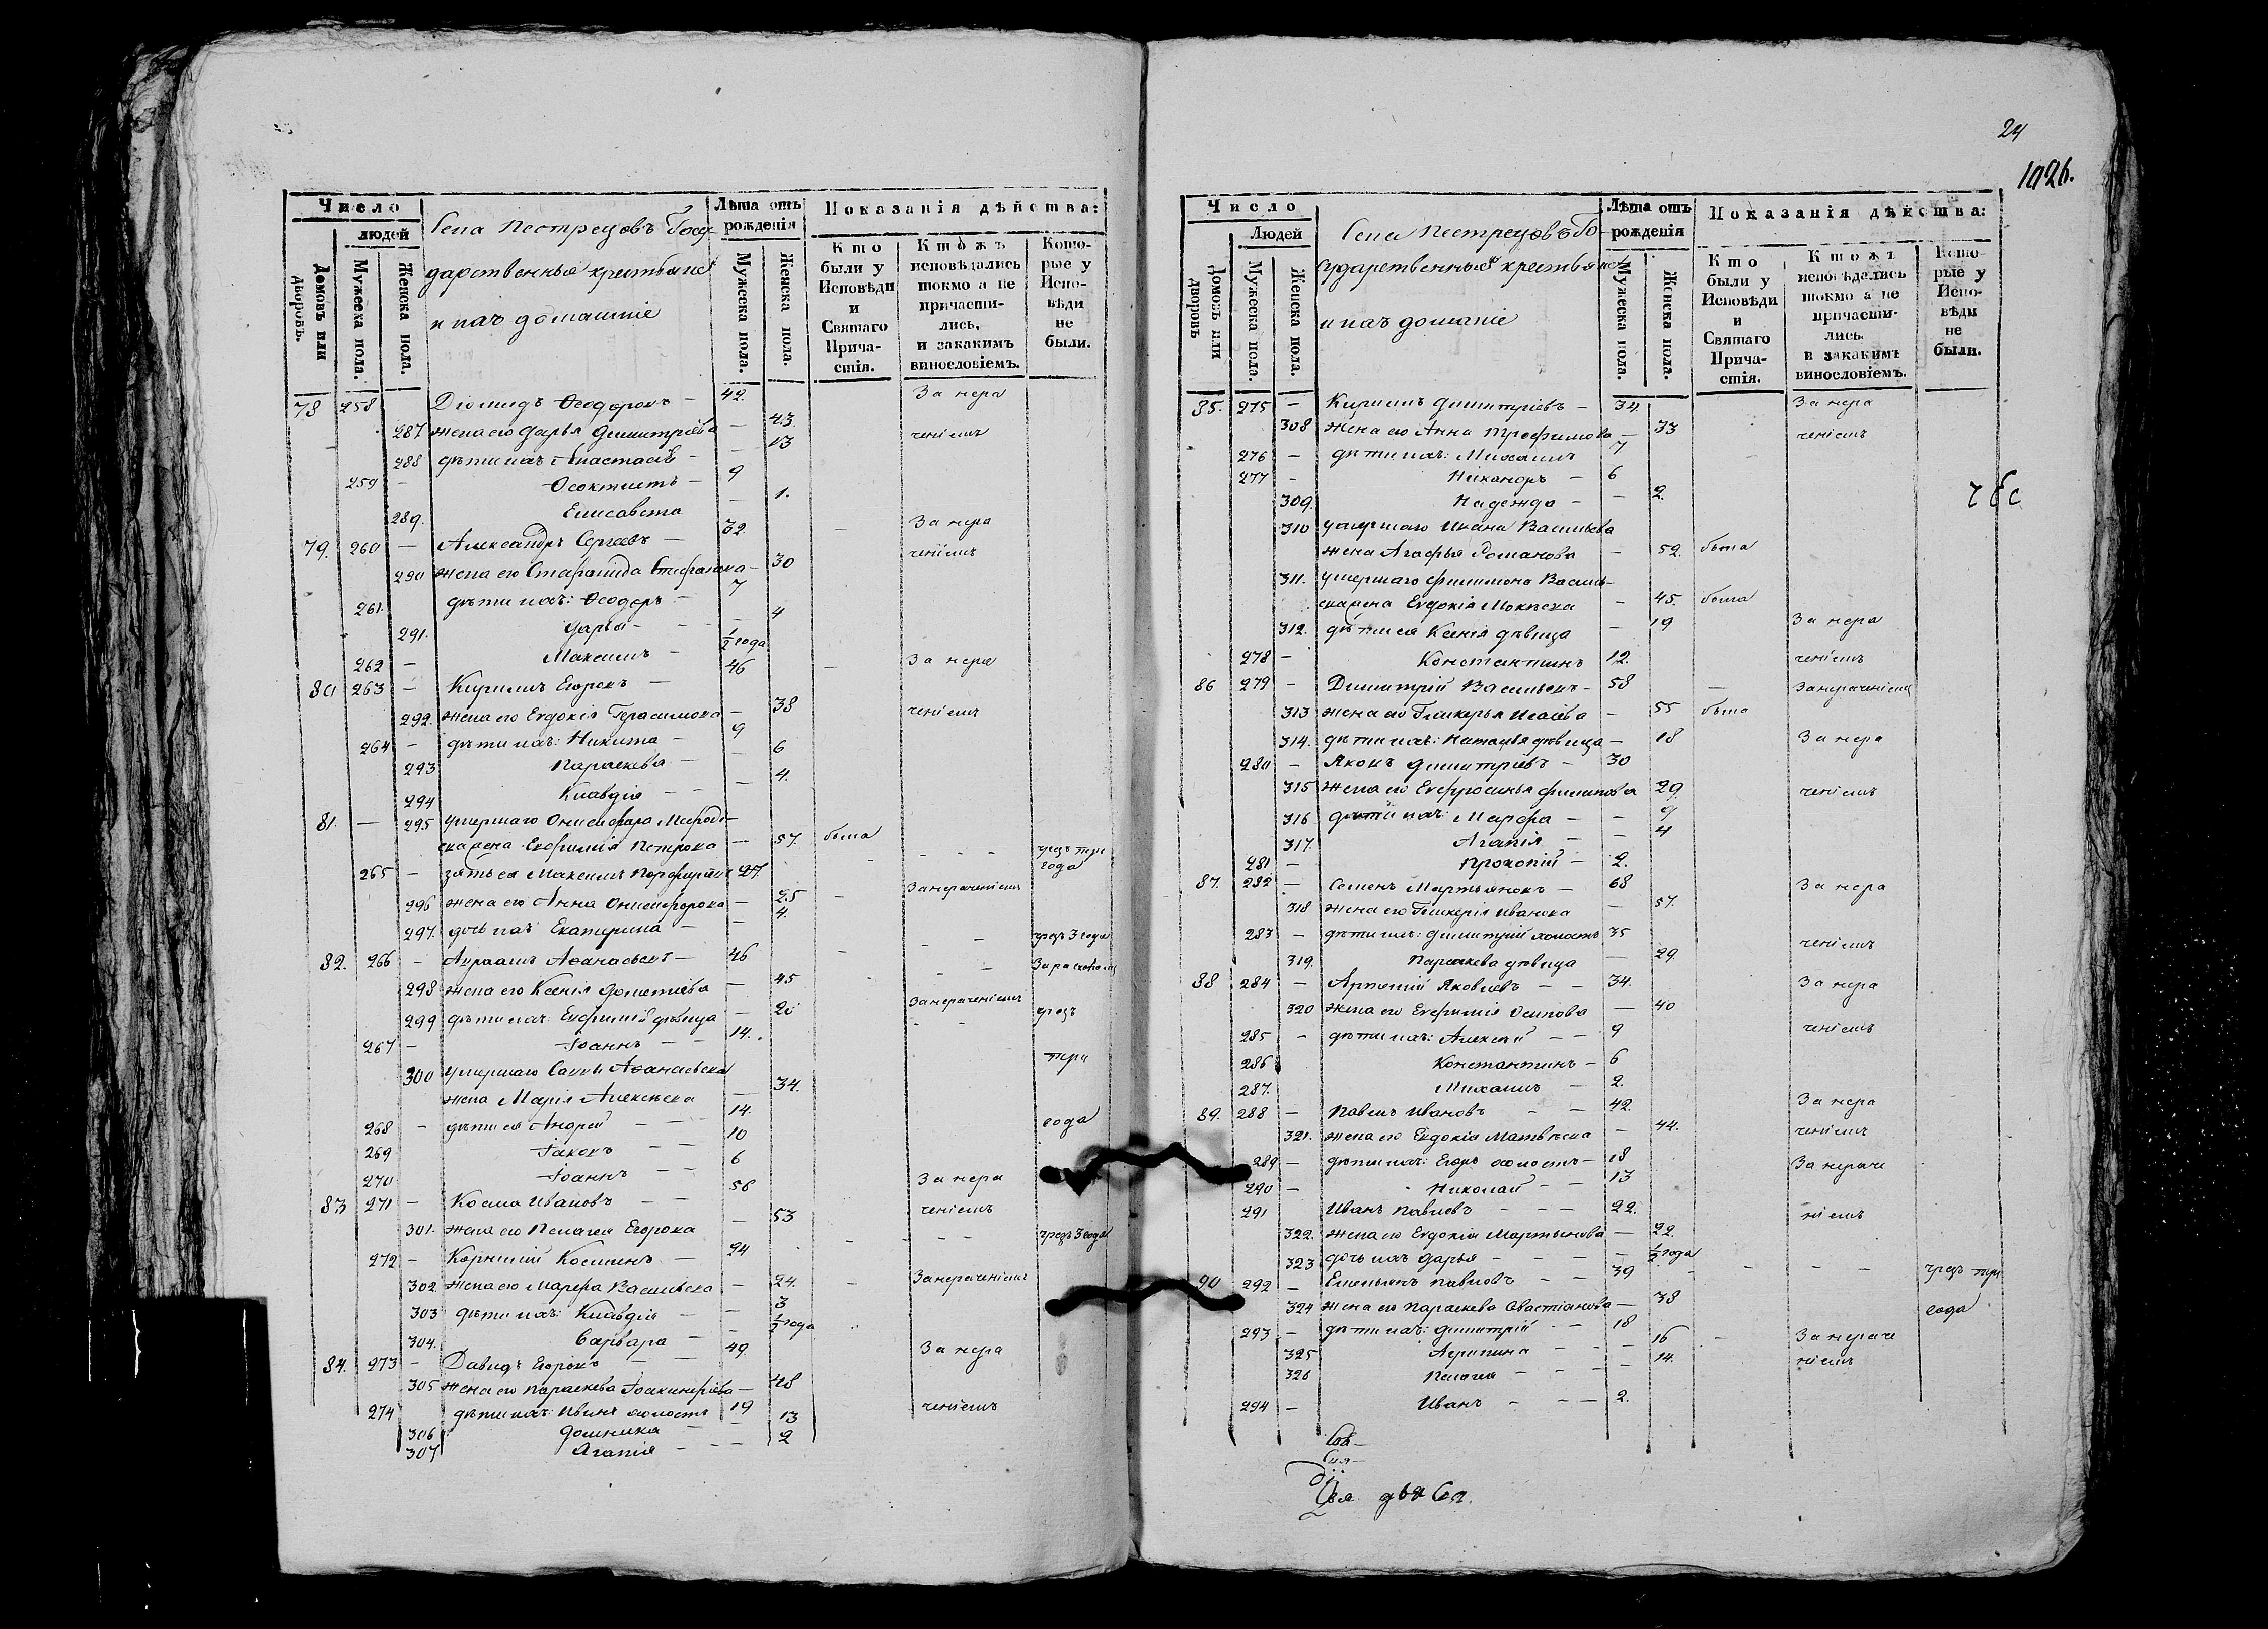 Число
людей
Домовъ или дворовъ.
Мужеска пола.
Женска пола.
Села Пестрецовъ Госу-
дарственныя крестьяне
и ихъ домашніе
Лѣта отъ рожденія
Мужеска пола.
Женска пола.
Показанія дѣйства:
Кто были у Исповѣди и Святаго Причастія.
Ктожъ исповѣдались токмо а не причастились, и закакимъ винословіемъ.
Которые у Исповѣди не были.
78 258 Діомидъ Ѳеодоровъ — 42. За нера
287 жена его Дарья Димитріева — 43
288 дѣти ихъ Анастасія — — 13 ченіемъ
259 — Ѳеоктистъ — 9
289. Елисавета — 1.
79. 260 — Александръ Сергеевъ — 32. — За нера
290 жена его 30 ченіемъ
261. дѣти ихъ: Ѳеодоръ — 7
291. Дарья — — 4
262 — Максимъ — ½ года
80 263 — Кирилъ Егоровъ — 46 — За нера
292. жена его Евдокія Герасимова — 38 ченіемъ
264 — дѣти ихъ: Никита — 9
293 Параскева — — 6
294 Клавдія — — 4.
81. — 295 умершаго Онисифора
жена Евфимія Петрова — 57. была
265 — зять ея Максимъ 27. — — — чрезъ три года
296 жена его Анна Онисифорова — 25 — Занераченіемъ
297. дочь ихъ Екатерина — — 4.
82. 266 — Авраамъ Аѳанасьевъ — 46 — — — чрезъ 3 года
298 жена его Ксенія — 45 — — За расколомъ
299 дѣти ихъ: Евфимія дѣвица — 20 Занераченіемъ
267 — Іоаннъ — — 14. — — чрезъ
300 умершаго Саввы Аѳанасьева три
жена Марія Алексѣева — 34.
268 — дѣти ея Андрей — — 14. года
269 Іаковъ — — 10
270 Іоаннъ — — 6
83 271 — Косма Ивановъ — — 56 За нера
301. жена его Пелагея Егорова — 53 ченіемъ
272 — Корнилій Косминъ — 24 — — — чрезъ 3 года
302 жена его Марфа Васильева — 24. — Занераченіемъ
303 дѣти ихъ: Клавдія — — 3
304. Варвара — — ½ года
84. 273 — Давидъ Егоровъ — — 49. За нера
305 жена его Параскева — 48
274 дѣти ихъ: Иванъ холостъ 19 ченіемъ
306 Домника — — 13
307 Агапія — — — 2
24
1026.
Число
Людей
Домовъ или дворовъ
Мужеска пола.
Женска пола.
Села Пестрецовъ Го-
сударственныя крестьяне
и ихъ домашніе
Лѣта отъ рожденія
Мужеска пола.
Женска пола.
Показанія дѣйства:
Кто были у Исповѣди и Святаго Причастія.
Ктожъ исповѣдались токмо а не причастились. и закакимъ винословіемъ.
Которые у Исповѣди не были.
85. 275 — Кирилъ Димитріевъ — 34. За нера
308 жена его Анна Трофимова — 33 ченіемъ
276 — дѣти ихъ: Михаилъ 7
277 — Никаноръ — 6
309. Надежда — — 2.
310 умершаго Ивана Васильева
жена Агафья Романова — 52. была
311. умершаго Филимона Василь-
жена Евдокія — 45. была
312. дѣти ея Ксенія дѣвица — 19 За нера
278 — Константинъ 12. ченіемъ
86 279 — Димитрій Васильевъ — 58 — Занераченіемъ
313 жена его Гликерья Исаева — 55 была
314. дѣти ихъ: Наталья дѣвица — 18 За нера
280 — Яковъ Димитріевъ — 30
315 жена его Евфросинья 29. ченіемъ
316 дѣти ихъ: Марфа — — 9
317. Агапія — — 4
281 — Прокопій — 2.
87. 282 — Семенъ Мартьяновъ — 68 За нера
318 жена его Гликерія Иванова — 57.
283 — дѣти ихъ: Димитрій холостъ 35 ченіемъ
319. Параскева дѣвица — 29.
88 284 — Артемій Яковлевъ — — 34. За нера
320 жена его Евфимія Осипова — 40
285 — дѣти ихъ: Алексѣй — — 9 ченіемъ
286 Константинъ — 6
287. Михаилъ — 2.
89. 288 — Павелъ Ивановъ — — 42. За нера
321. жена его Евдокія Матвѣева — 44. ченіемъ
289 — дѣти ихъ: Егоръ холостъ — 18 За нераче
290 — Николай — — 13
291 Иванъ Павловъ — — — 22. ніемъ
322. жена его Евдокія Мартынова — 22.
323 дочь ихъ Дарья — — — — ½ года
90 292 — Емельянъ Павловъ — — 39 — — — чрезъ три
324 жена его Параскева Савастіанова — 38 года
293 — дѣти ихъ: Димитрій — — 18
325 Агрипина — — — 16 — За нераче
326 Пелагея — — — 14. ніемъ
294 — Иванъ — — — 2.